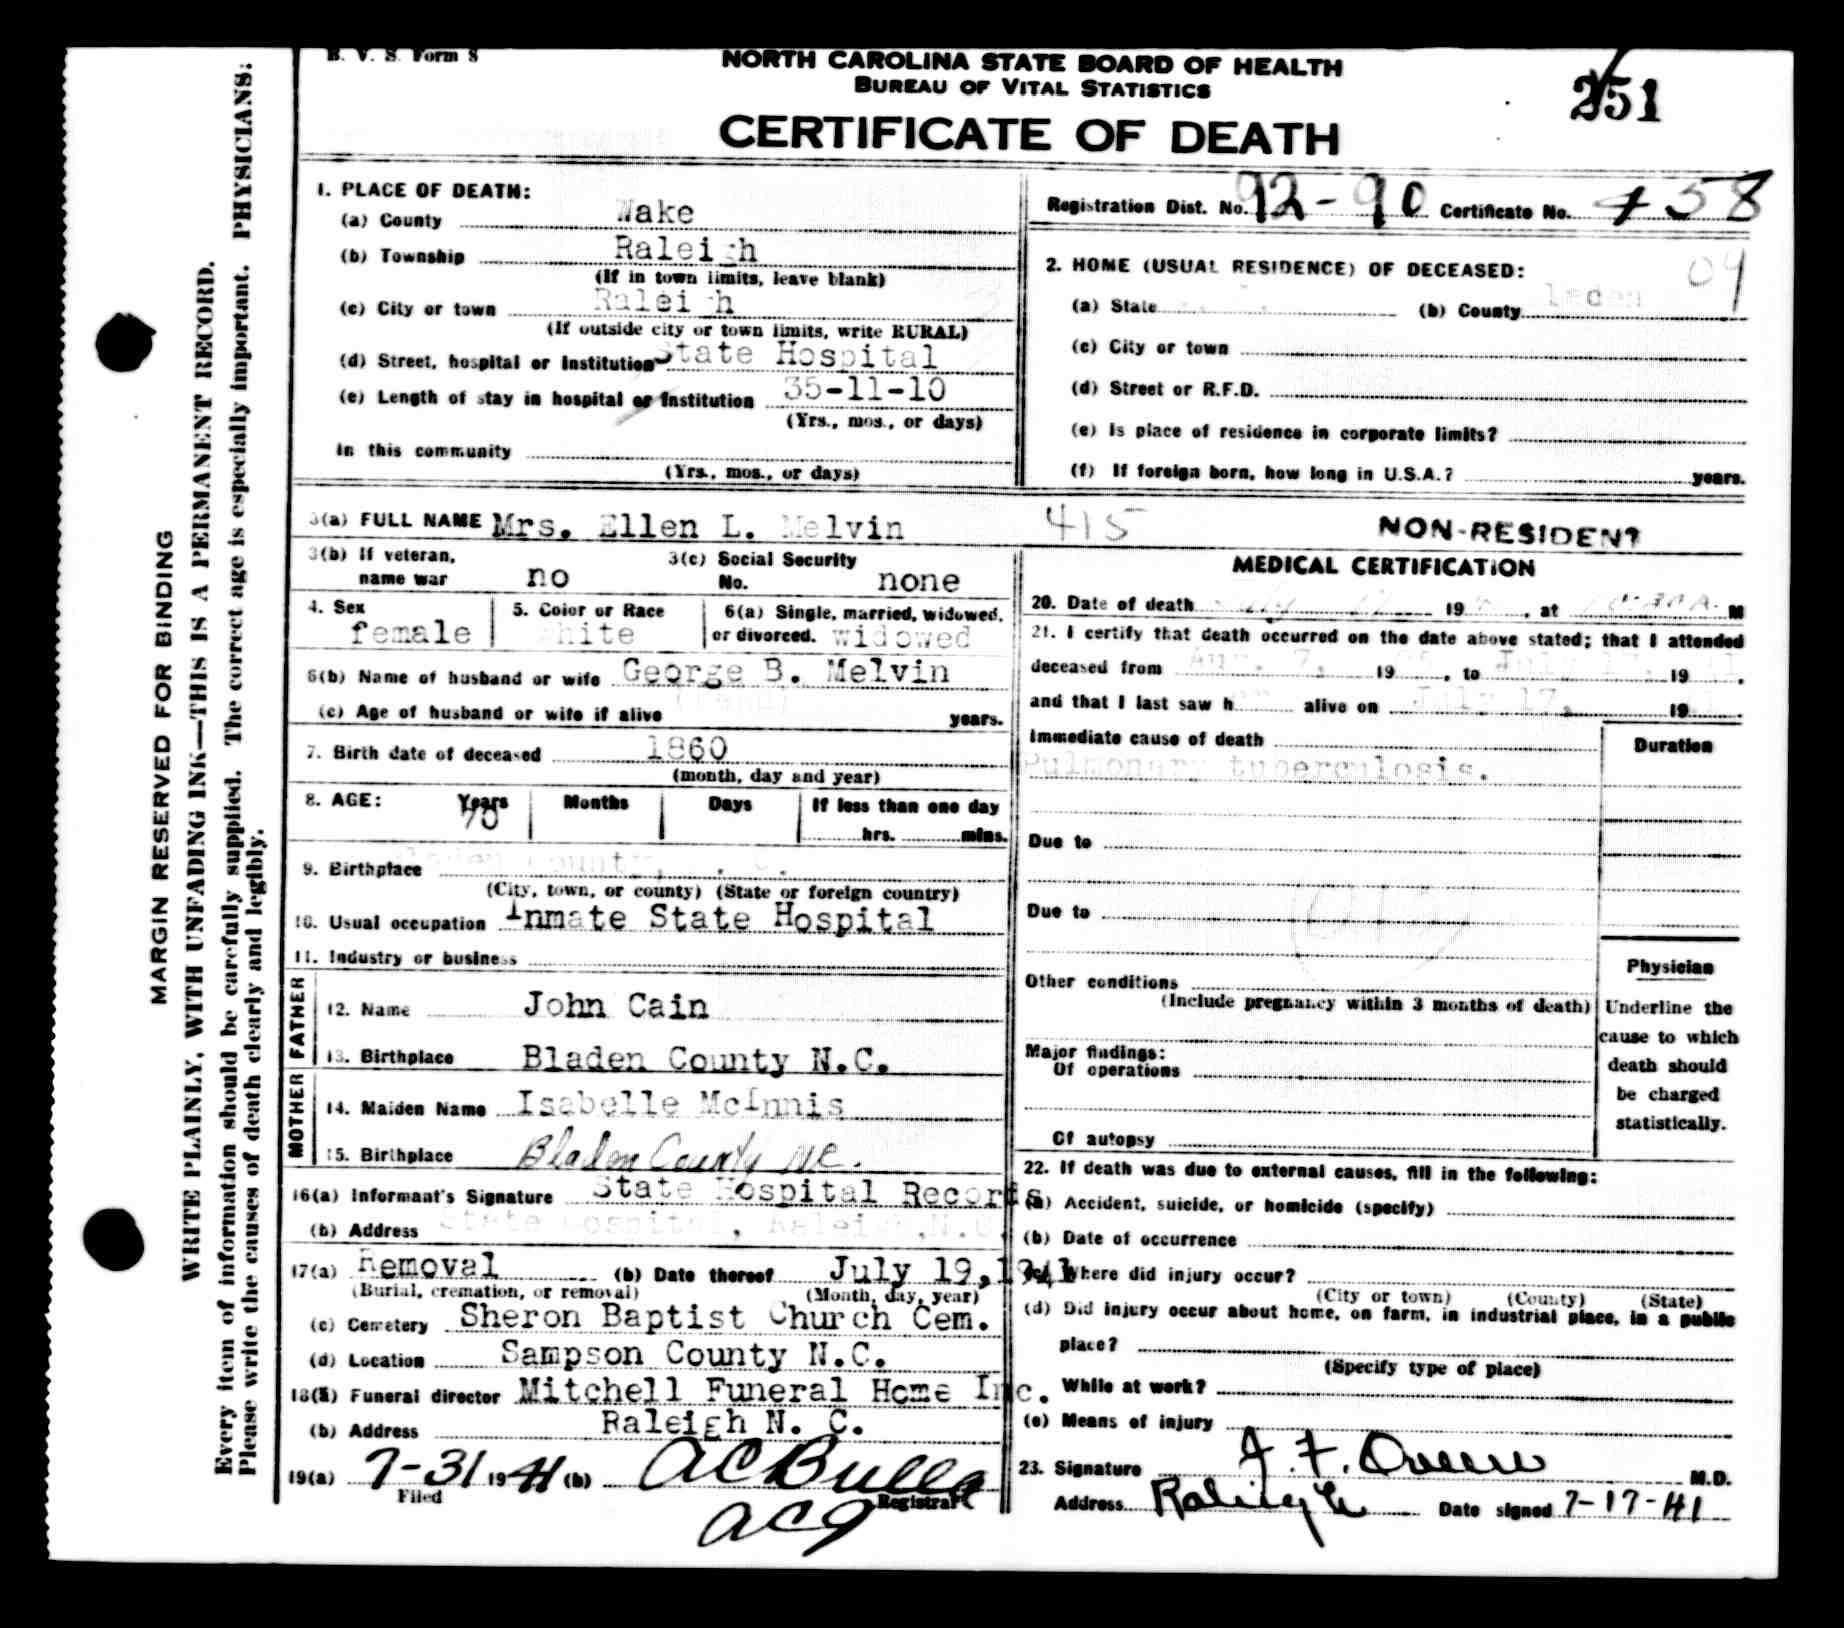 B. V. S. Form 8
NORTH CAROLINA STATE BOARD OF HEALTH
BUREAU OF VITAL STATISTICS
CERTIFICATE OF DEATH
251
MARGIN RESERVED FOR BINDING
WRITE PLAINLY, WITH UNFADING INK—THIS IS A PERMANENT RECORD.
Every item of information should be carefully supplied. The correct age is especially important. PHYSICIANS:
Please write the causes of death clearly and legibly.
1. PLACE OF DEATH:
(a) County Wake
(b) Township Raleigh
(If in town limits, leave blank)
(c) City or town Raleigh
(If outside city or town limits, write RURAL)
(d) Street, hospital or institution State Hospital
(e) Length of stay in hospital or institution 35-11-10
(Yrs., mos., or days)
In this community
(Yrs., mos., or days)
Registration Dist. No. 92-90 Certificate No. 458
2. HOME (USUAL RESIDENCE) OF DECEASED: 09
(a) State (b) County laden
(c) City or town
(d) Street or R.F.D.
(e) Is place of residence in corporate limits?
(f) If foreign born, how long in U.S.A.? years.
3(a) FULL NAME Mrs. Ellen L. Melvin
415 NON-RESIDENT
3(b) If veteran, name war no
3(c) Social Security No. none
4. Sex female
5. Color or Race white
6(a) Single, married, widowed, or divorced. widowed
6(b) Name of husband or wife George B. Melvin
(c) Age of husband or wife if alive (dead) years.
7. Birth date of deceased 1860
(month, day and year)
8. AGE: Years Months Days If less than one day
hrs. mins.
9. Birthplace Bladen County, N. C.
(City, town, or county) (State or foreign country)
10. Usual occupation Inmate State Hospital
11. Industry or business
FATHER
12. Name John Cain
13. Birthplace Bladen County N.C.
MOTHER
14. Maiden Name Isabelle McInnis
15. Birthplace Bladen County NC.
16(a) Informant's Signature State Hospital Records
(b) Address State Hospital, Raleigh, N.C.
17(a) Removal (b) Date thereof July 19, 1941
(Burial, cremation, or removal) (Month, day, year)
(c) Cemetery Sheron Baptist Church Cem.
(d) Location Sampson County N.C.
18(a) Funeral director Mitchell Funeral Home Inc.
(b) Address Raleigh N. C.
19(a) 7-31 1941 (b) A C Bulla
Filed Registrar
acg
MEDICAL CERTIFICATION
20. Date of death July 17 19 , at 10:30 A. M
21. I certify that death occurred on the date above stated; that I attended
deceased from Aug. 7, 19 05, to July 17, 19 41,
and that I last saw h er alive on July 17, 19 41.
Immediate cause of death Duration
Pulmonary tuberculosis.
Due to
Due to
Other conditions
(Include pregnancy within 3 months of death)
Major findings:
Of operations
Of autopsy
Physician
Underline the
cause to which
death should
be charged
statistically.
22. If death was due to external causes, fill in the following:
(a) Accident, suicide, or homicide (specify)
(b) Date of occurrence
(c) Where did injury occur?
(City or town) (County) (State)
(d) Did injury occur about home, on farm, in industrial place, in a public
place?
(Specify type of place)
While at work?
(e) Means of injury
23. Signature J. F. Owen M.D.
Address Raleigh Date signed 7-17-41